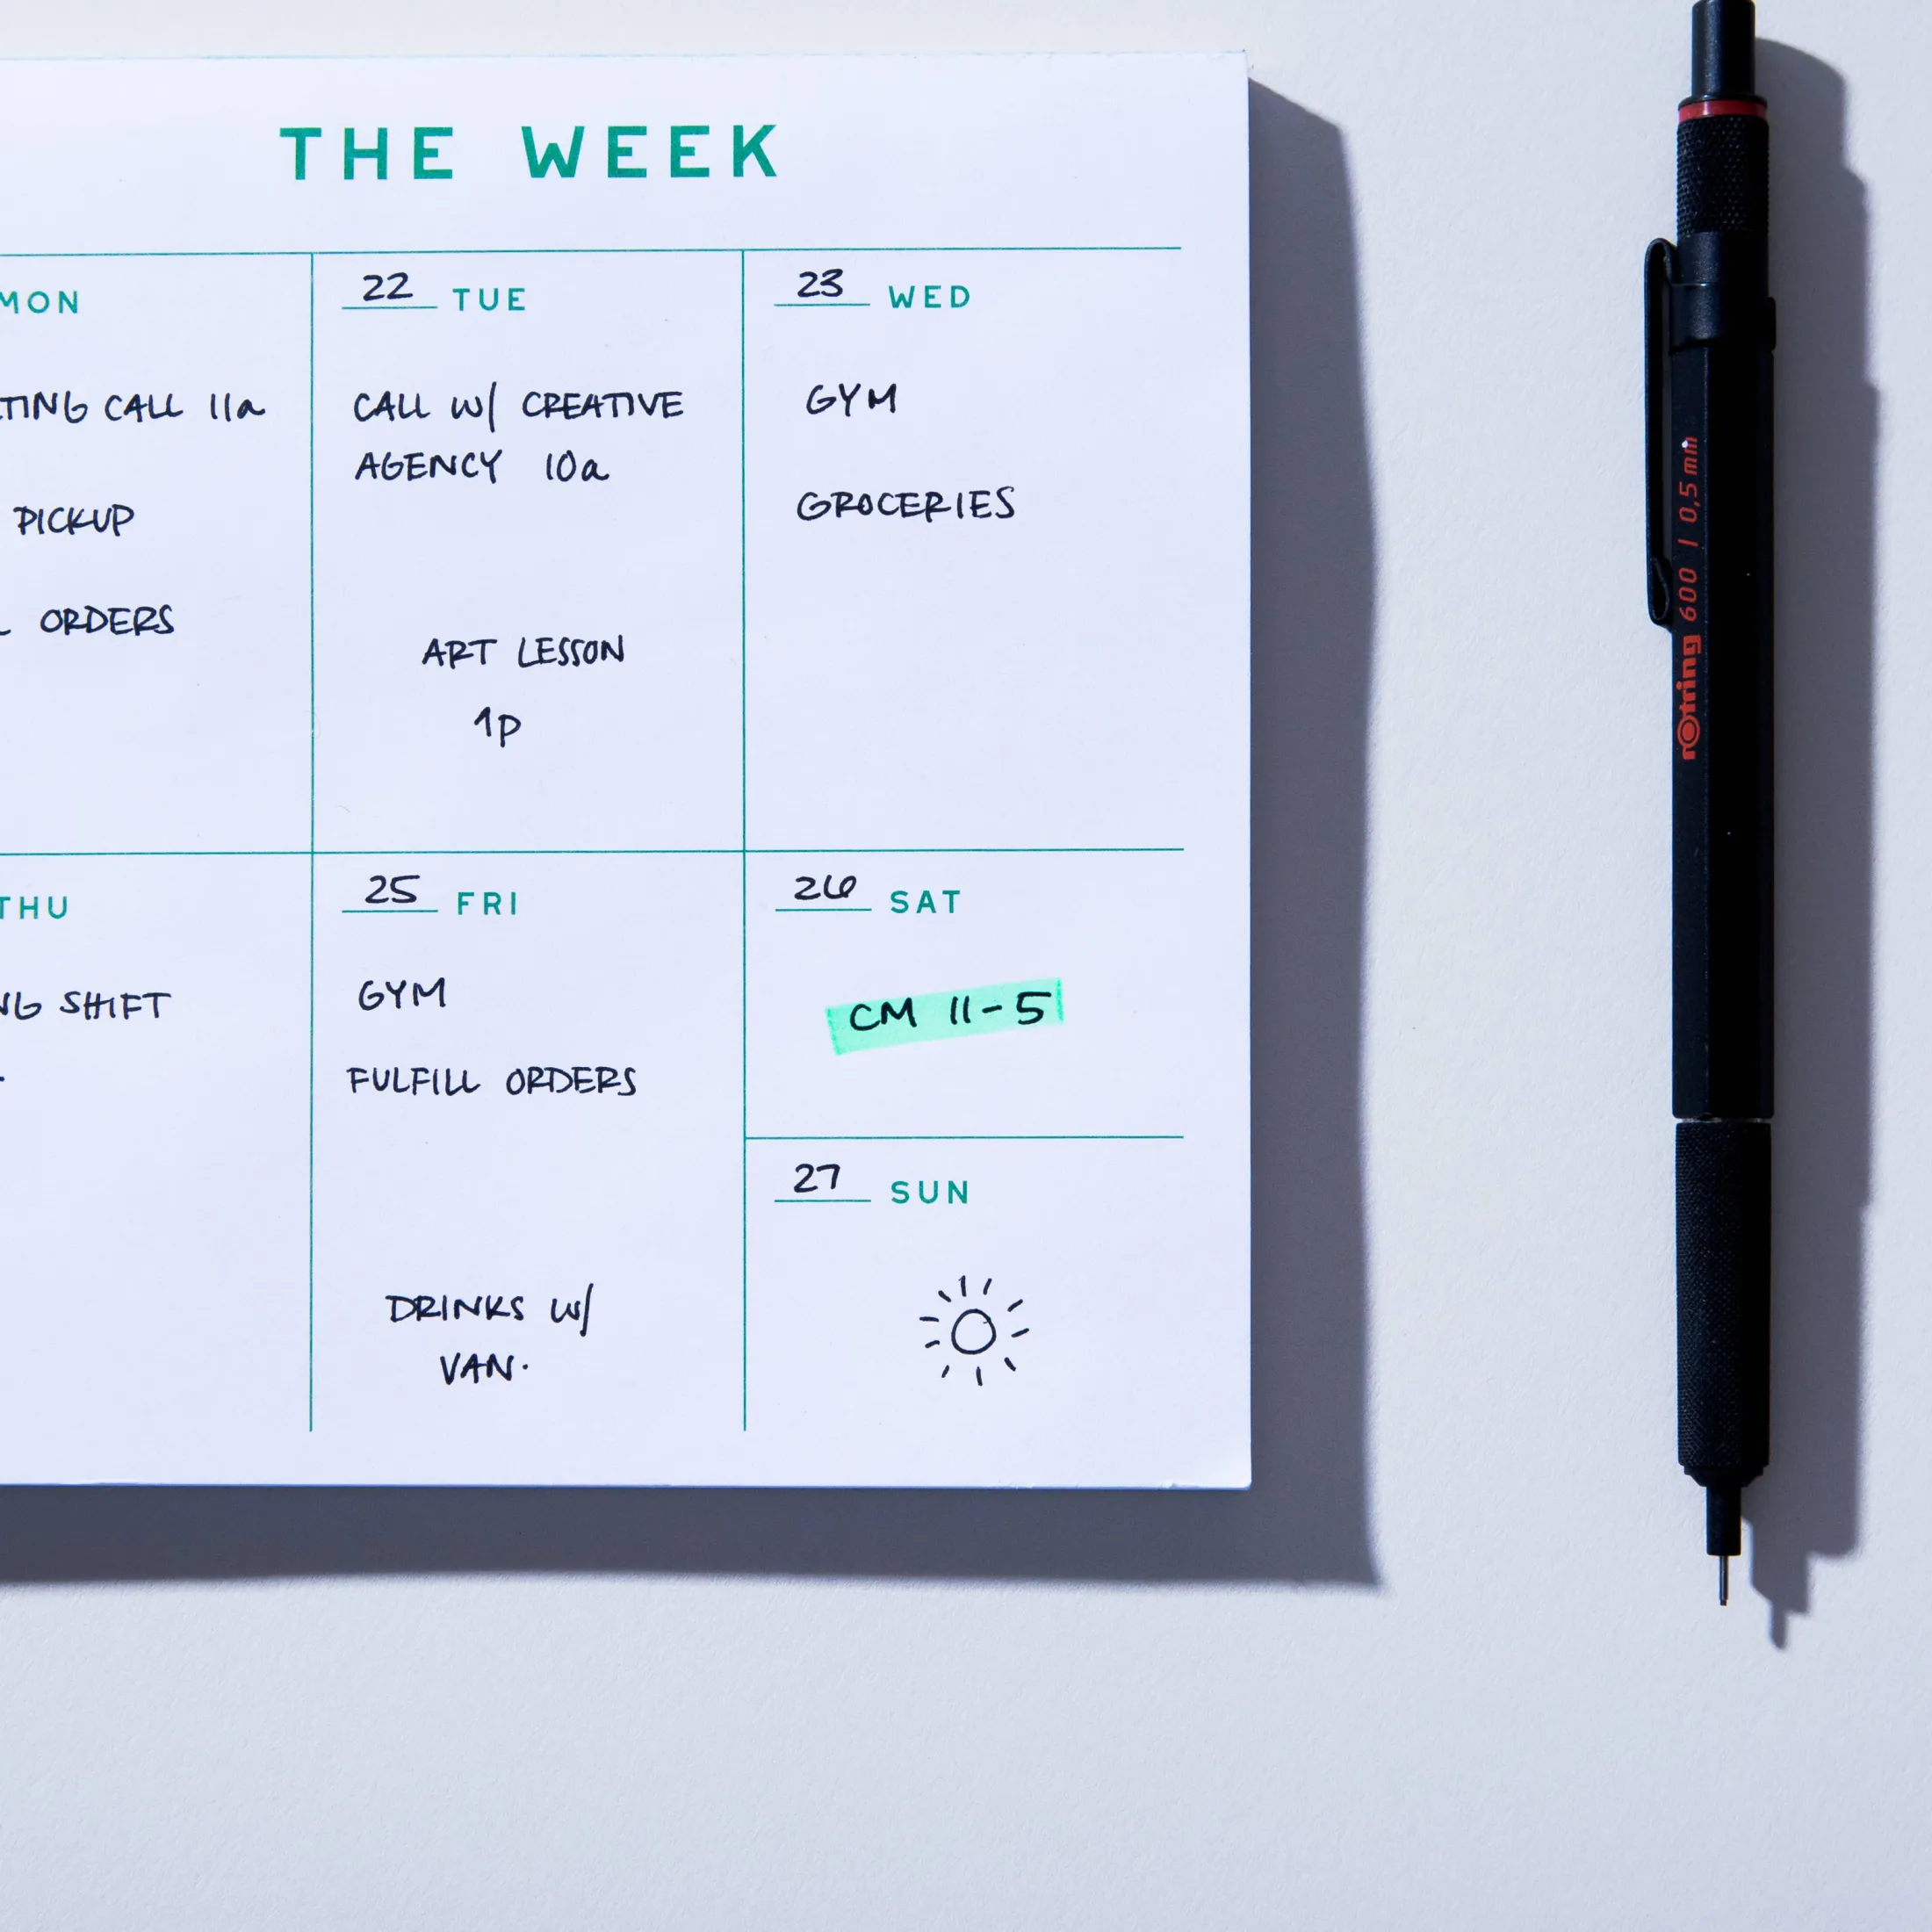 THE WEEK
MON
TING CALL 11a
PICKUP
ORDERS
22 TUE
CALL W/ CREATIVE
AGENCY 10a
ART LESSON
1p
23 WED
GYM
GROCERIES
THU
NG SHIFT
25 FRI
GYM
FULFILL ORDERS
DRINKS W/
VAN.
26 SAT
CM 11-5
27 SUN
rotring 600 | 0,5 mm